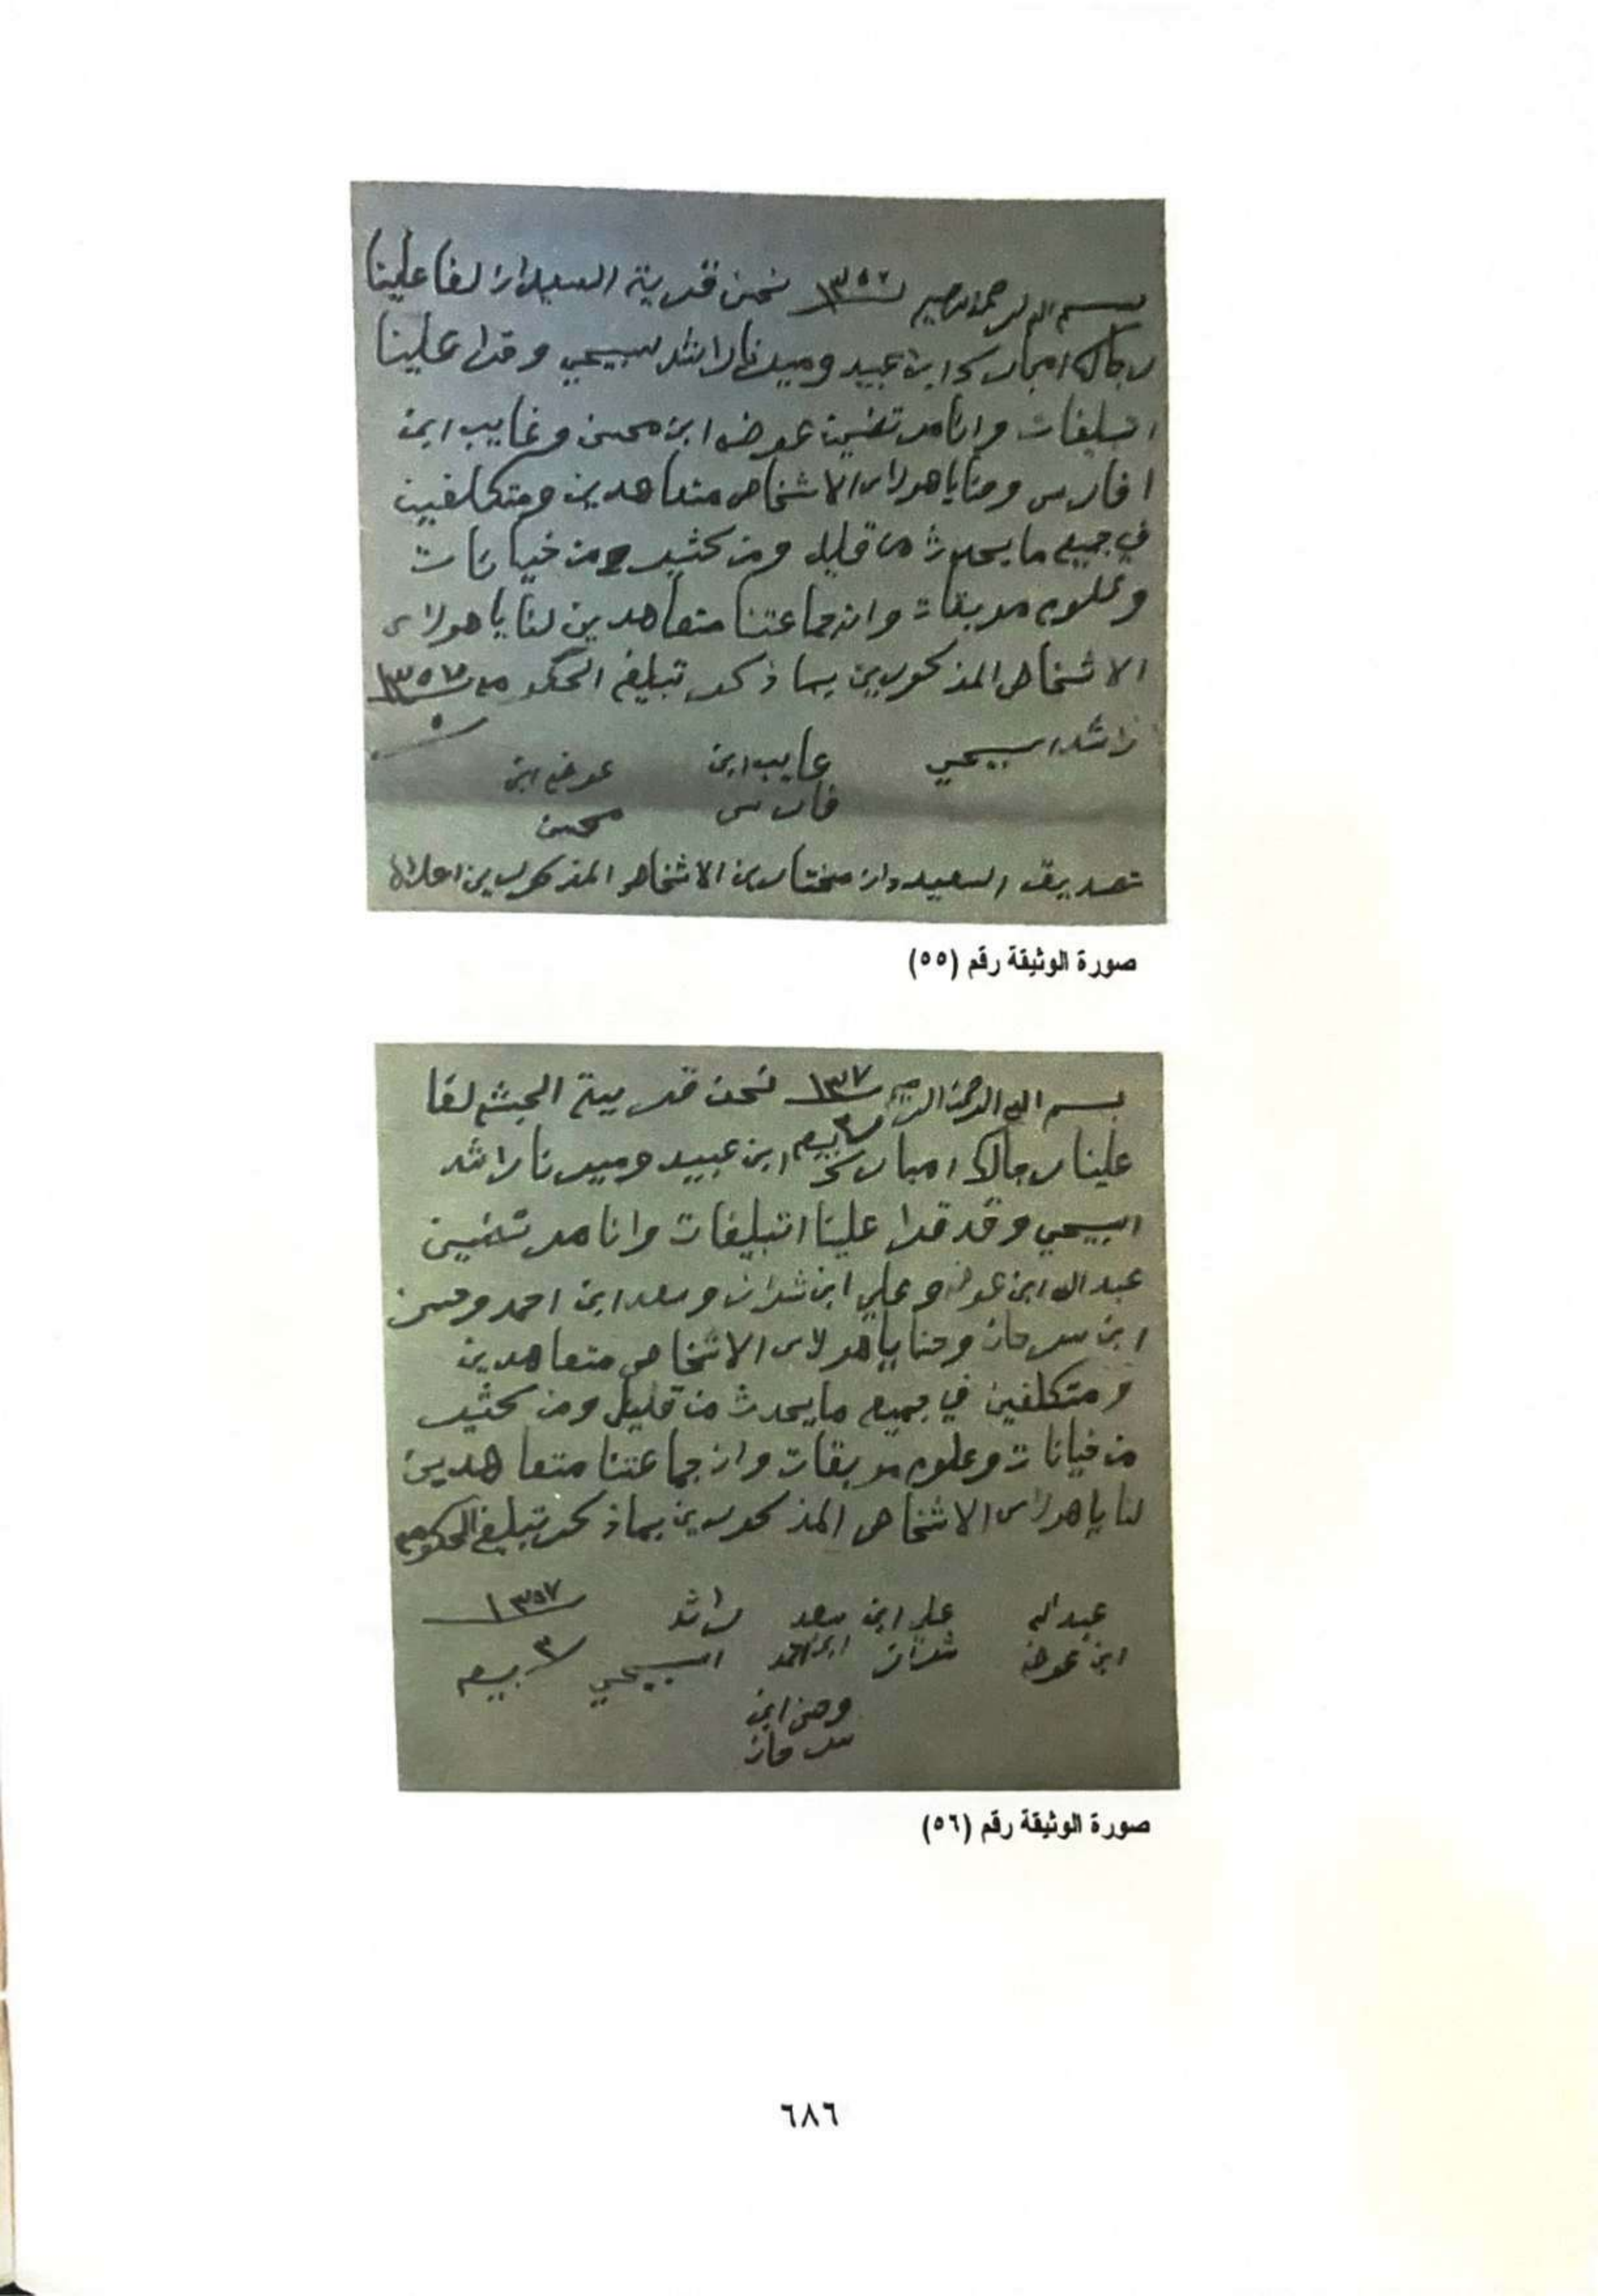 بسم الله الرحمن الرحيم ١٣٥٧ نحن قرية السعيدان لفا علينا
رجالك امبارك ابن عبيد وميرنا راشد سبيحي وقرا علينا
اتبلغات وانا مرتضين عوض ابن محسن وغايب ابن
افارس وحنا يا هولاى الاشخاص متعاهدين ومتكلفين
في جميع ما يحدث من قليل ومن كثير ومن خيانات
وعلوم موبقات وان جماعتنا متعاهدين لنا يا هولاى
الاشخاص المذكورين بما ذكر تبليغ الحكومه ١٣٥٧
٥
راشد اسبيحي غايب ابن عوض ابن
فارس محسن
تصديق السعيدان مختارين الاشخاص المذكورين اعلاه
صورة الوثيقة رقم (٥٥)
بسم الله الرحمن الرحيم ١٣٧ نحن قرية الجشم لفا
علينا رجالك امبارك ابن عبيد وميرنا راشد
٣ ربيع
اسبيحي وقد قرا علينا اتبليغات وانا مرتضين
عبدالله ابن عوض وعلي ابن شران وسعد ابن احمد وحسن
ابن سرحان وحنا يا هولاى الاشخاص متعاهدين
ومتكلفين في جميع ما يحدث من قليل ومن كثير
من خيانات وعلوم موبقات وان جماعتنا متعاهدين
لنا يا هولاى الاشخاص المذكورين بما ذكر تبليغ الحكومه
عبدالله علي ابن سعد راشد ١٣٥٧
ابن عوض شران ابن احمد اسبيحي ٣ ربيع
ابن
سرحان
صورة الوثيقة رقم (٥٦)
٦٨٦